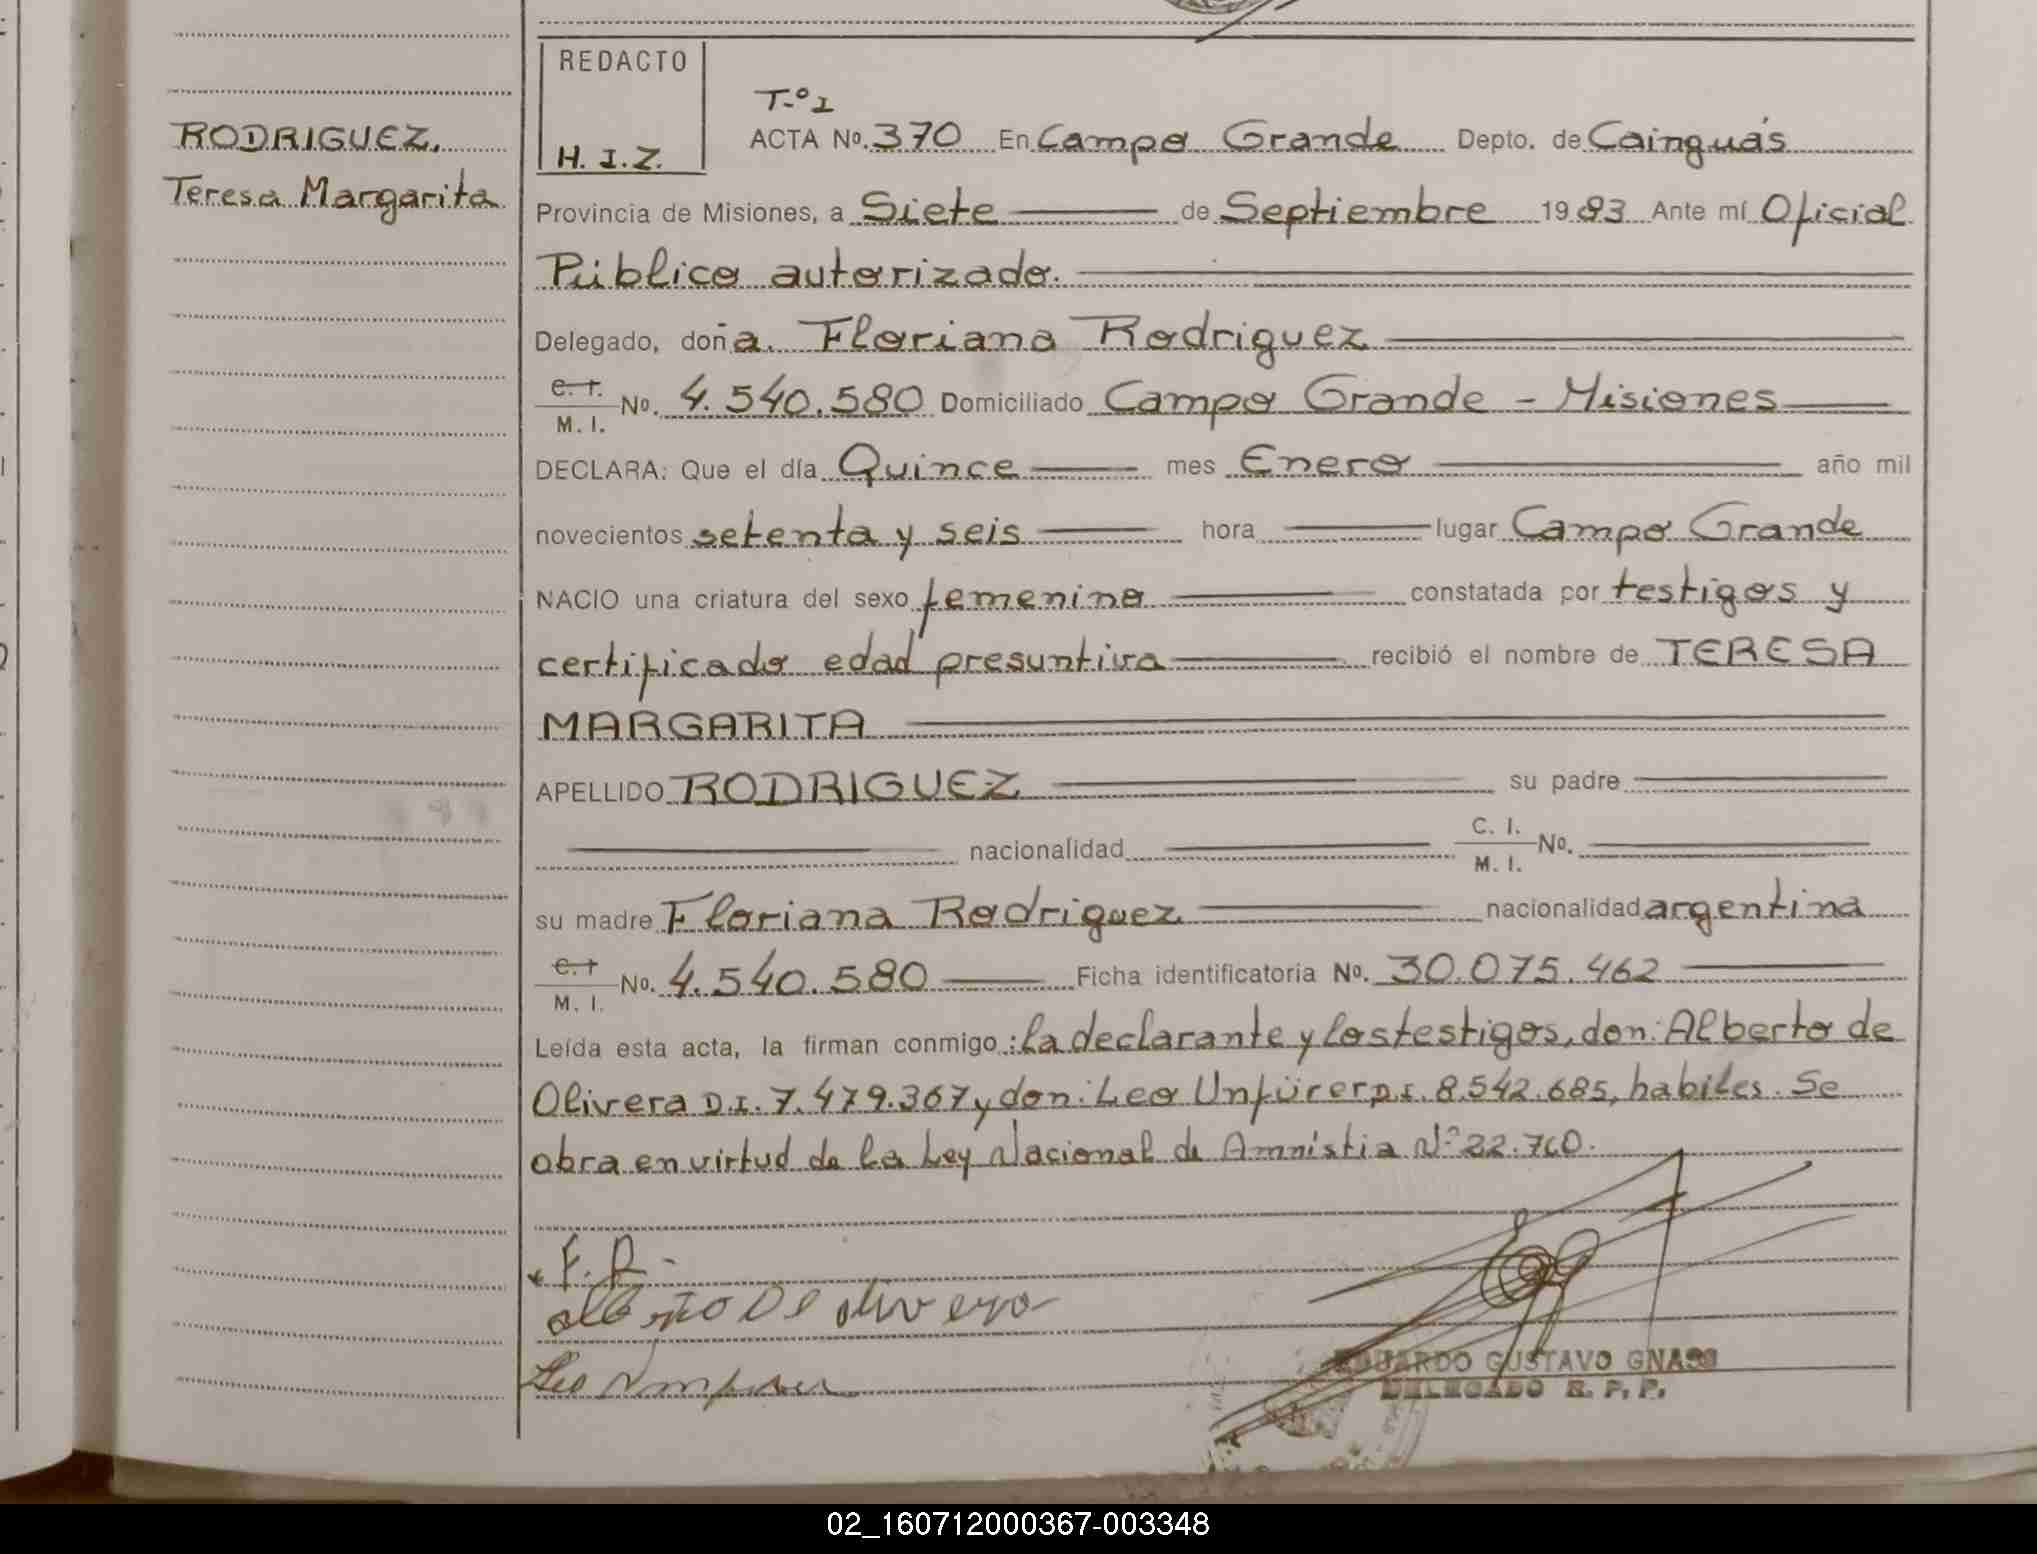 RODRIGUEZ,
Teresa Margarita
REDACTO
H. I. Z.
T.º I
ACTA Nº. 370 En Campo Grande Depto. de Cainguás
Provincia de Misiones, a Siete de Septiembre 19 83 Ante mí Oficial
Público autorizado.
Delegado, doña. Floriana Rodriguez
C. I.
M. I. Nº. 4.540.580 Domiciliado Campo Grande - Misiones
DECLARA: Que el día Quince mes Enero año mil
novecientos setenta y seis hora lugar Campo Grande
NACIO una criatura del sexo femenino constatada por testigos y
certificado edad presuntiva recibió el nombre de TERESA
MARGARITA
APELLIDO RODRIGUEZ su padre
nacionalidad C. I.
M. I. Nº.
su madre Floriana Rodriguez nacionalidad argentina
C. I.
M. I. Nº. 4.540.580 Ficha identificatoria Nº. 30.075.462
Leída esta acta, la firman conmigo: la declarante y los testigos, don: Alberto de
Olivera D.I. 7.479.367 y don: Leo Unfürer D.I. 8.542.685, habiles. Se
obra en virtud de la Ley Nacional de Amnistia Nº 22.760.
F. R.
Alberto De Olivera
Leo
EDUARDO GUSTAVO GNASS
DELEGADO R. P. P.
02_160712000367-003348